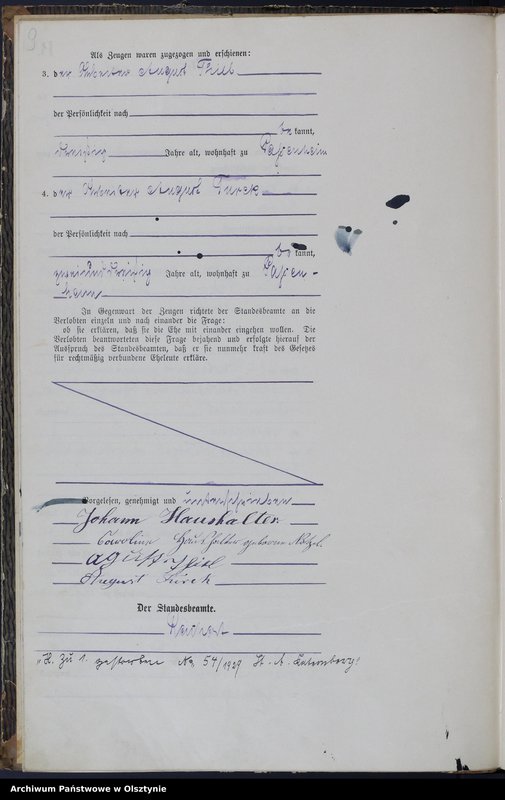 Als Zeugen waren zugezogen und erschienen:
3. der Arbeiter August Thiel
der Persönlichkeit nach
be kannt,
dreißig Jahre alt, wohnhaft zu Passenheim
4. der Arbeiter August Turck
der Persönlichkeit nach
be kannt,
zweiunddreißig Jahre alt, wohnhaft zu Passen-
heim
In Gegenwart der Zeugen richtete der Standesbeamte an die
Verlobten einzeln und nach einander die Frage:
ob sie erklären, daß sie die Ehe mit einander eingehen wollen. Die
Verlobten beantworteten diese Frage bejahend und erfolgte hierauf der
Ausspruch des Standesbeamten, daß er sie nunmehr kraft des Gesetzes
für rechtmäßig verbundene Eheleute erkläre.
Vorgelesen, genehmigt und unterschrieben
Johann Haushalter
Caroline Haushalter geborene
August
Der Standesbeamte.
zu 1. gestorben No 54/1929 St. A.
Archiwum Państwowe w Olsztynie